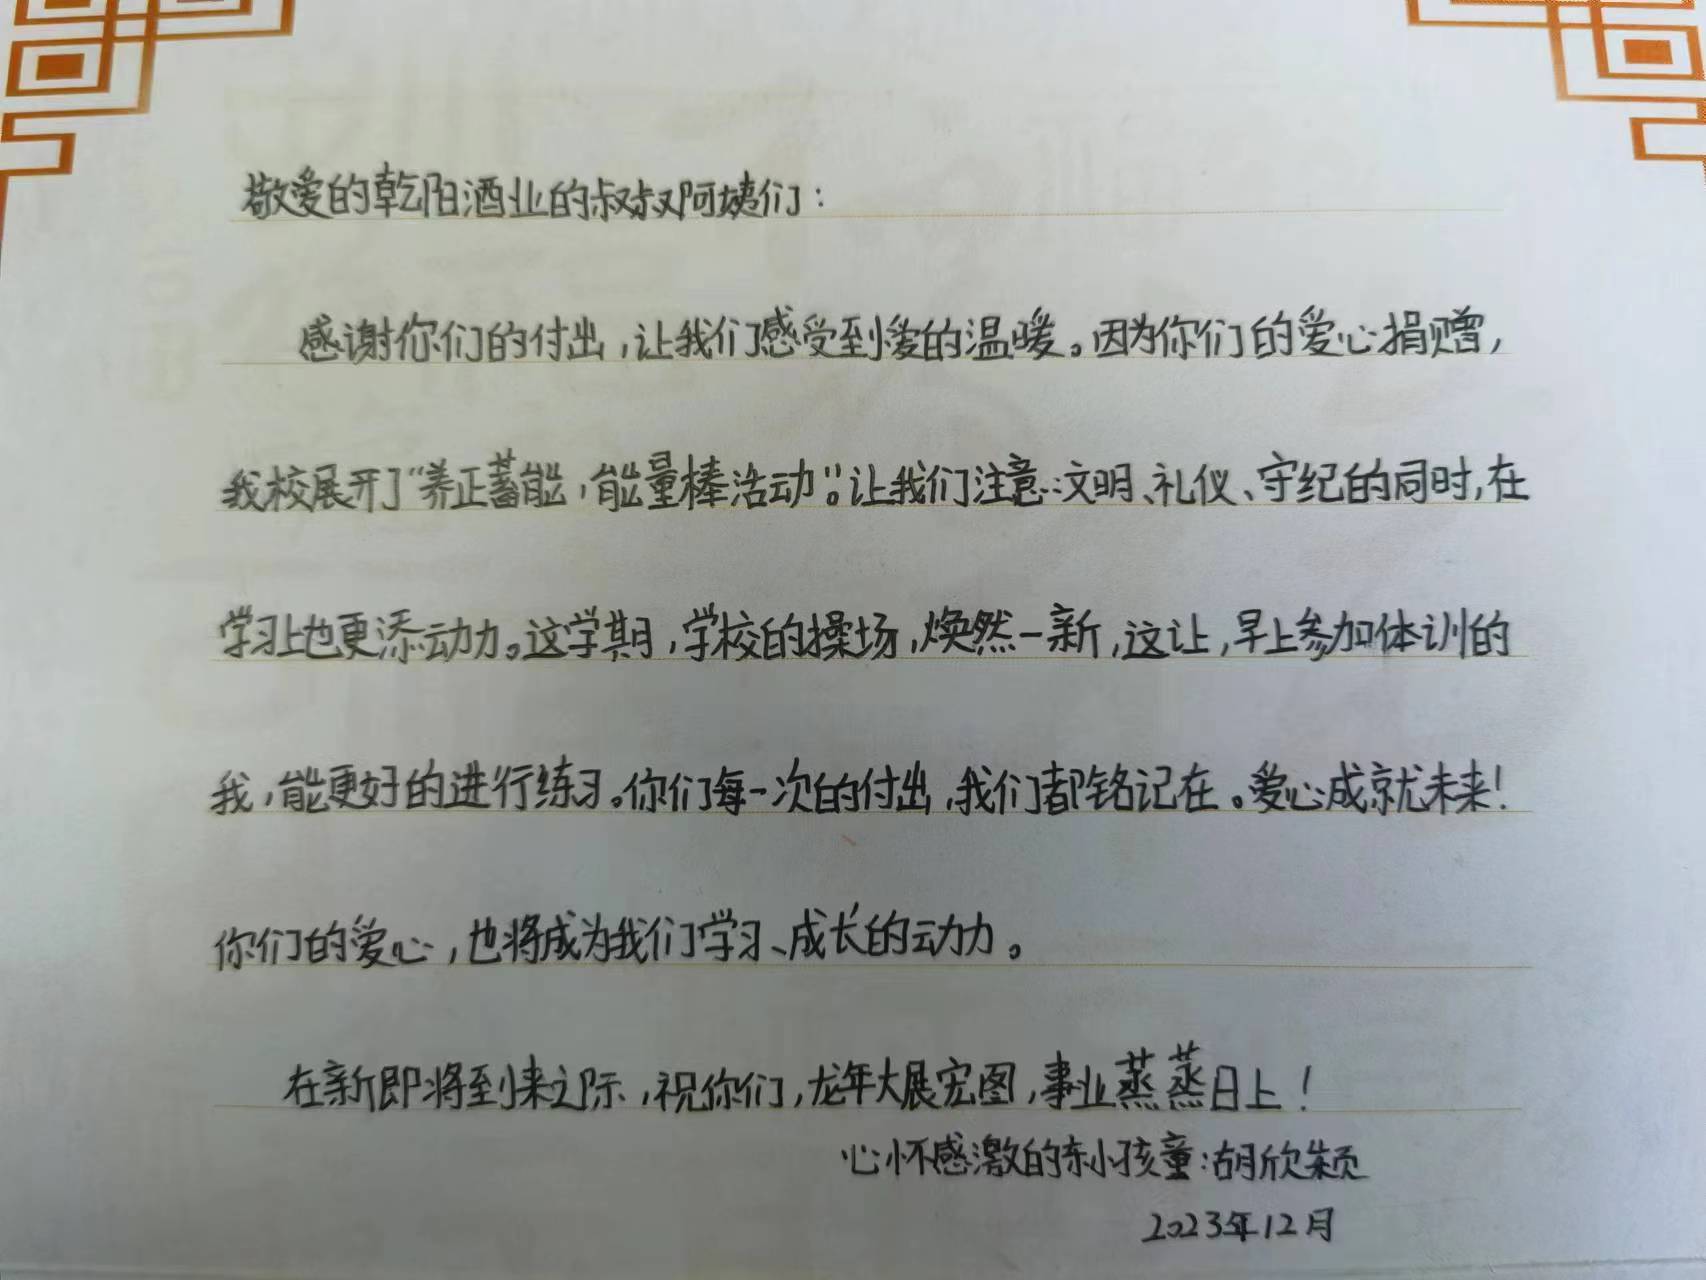 敬爱的乾阳酒业的叔叔阿姨们：
感谢你们的付出，让我们感受到爱的温暖。因为你们的爱心捐赠，
我校展开了“养正蓄能，能量棒活动”。让我们注意：文明、礼仪、守纪的同时，在
学习上也更添动力。这学期，学校的操场，焕然一新，这让，早上参加体训的
我，能更好的进行练习。你们每一次的付出，我们都铭记在。爱心成就未来！
你们的爱心，也将成为我们学习、成长的动力。
在新即将到来之际，祝你们，龙年大展宏图，事业蒸蒸日上！
心怀感激的东小孩童：胡欣颖
2023年12月